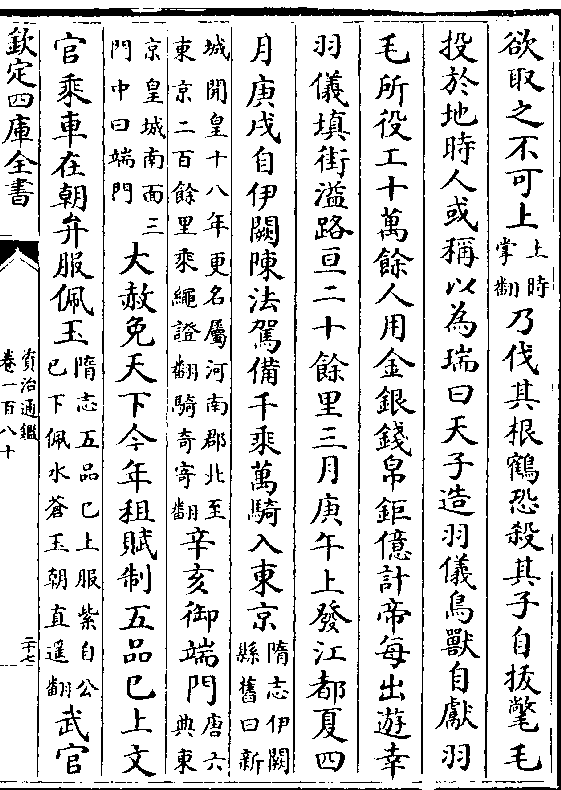 欲取之不可上上時掌翻乃伐其根鶴恐殺其子自拔氅毛
投於地時人或稱以為瑞曰天子造羽儀鳥獸自獻羽
毛所役工十萬餘人用金銀錢帛鉅億計帝每出遊幸
羽儀填街溢路亘二十餘里三月庚午上發江都夏四
月庚戌自伊闕陳法駕備千乘萬騎入東京隋志伊闕縣舊曰新
城開皇十八年更名屬河南郡北至東京二百餘里乘繩證翻騎奇寄翻辛亥御端門唐六典東
京皇城南面三門中曰端門大赦免天下今年租賦制五品已上文
官乘車在朝弁服佩玉隋志五品已上服紫自公已下佩水蒼玉朝直遥翻武官
欽定四庫全書
資治通鑑
卷一百八十
二十七